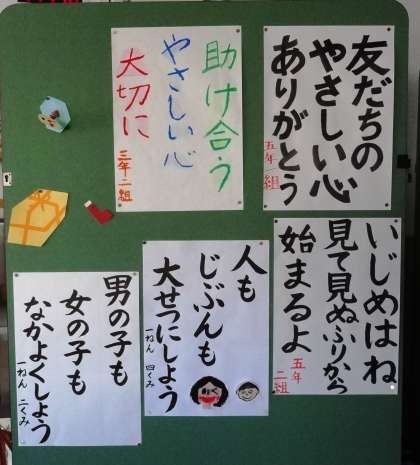 友だちの
やさしい心
ありがとう
五年一組
助け合う
やさしい心
大切に
三年二組
いじめはね
見て見ぬふりから
始まるよ
五年
二組
人も
じぶんも
大せつにしよう
一ねん 四くみ
男の子も
女の子も
なかよくしよう
一ねん 二くみ